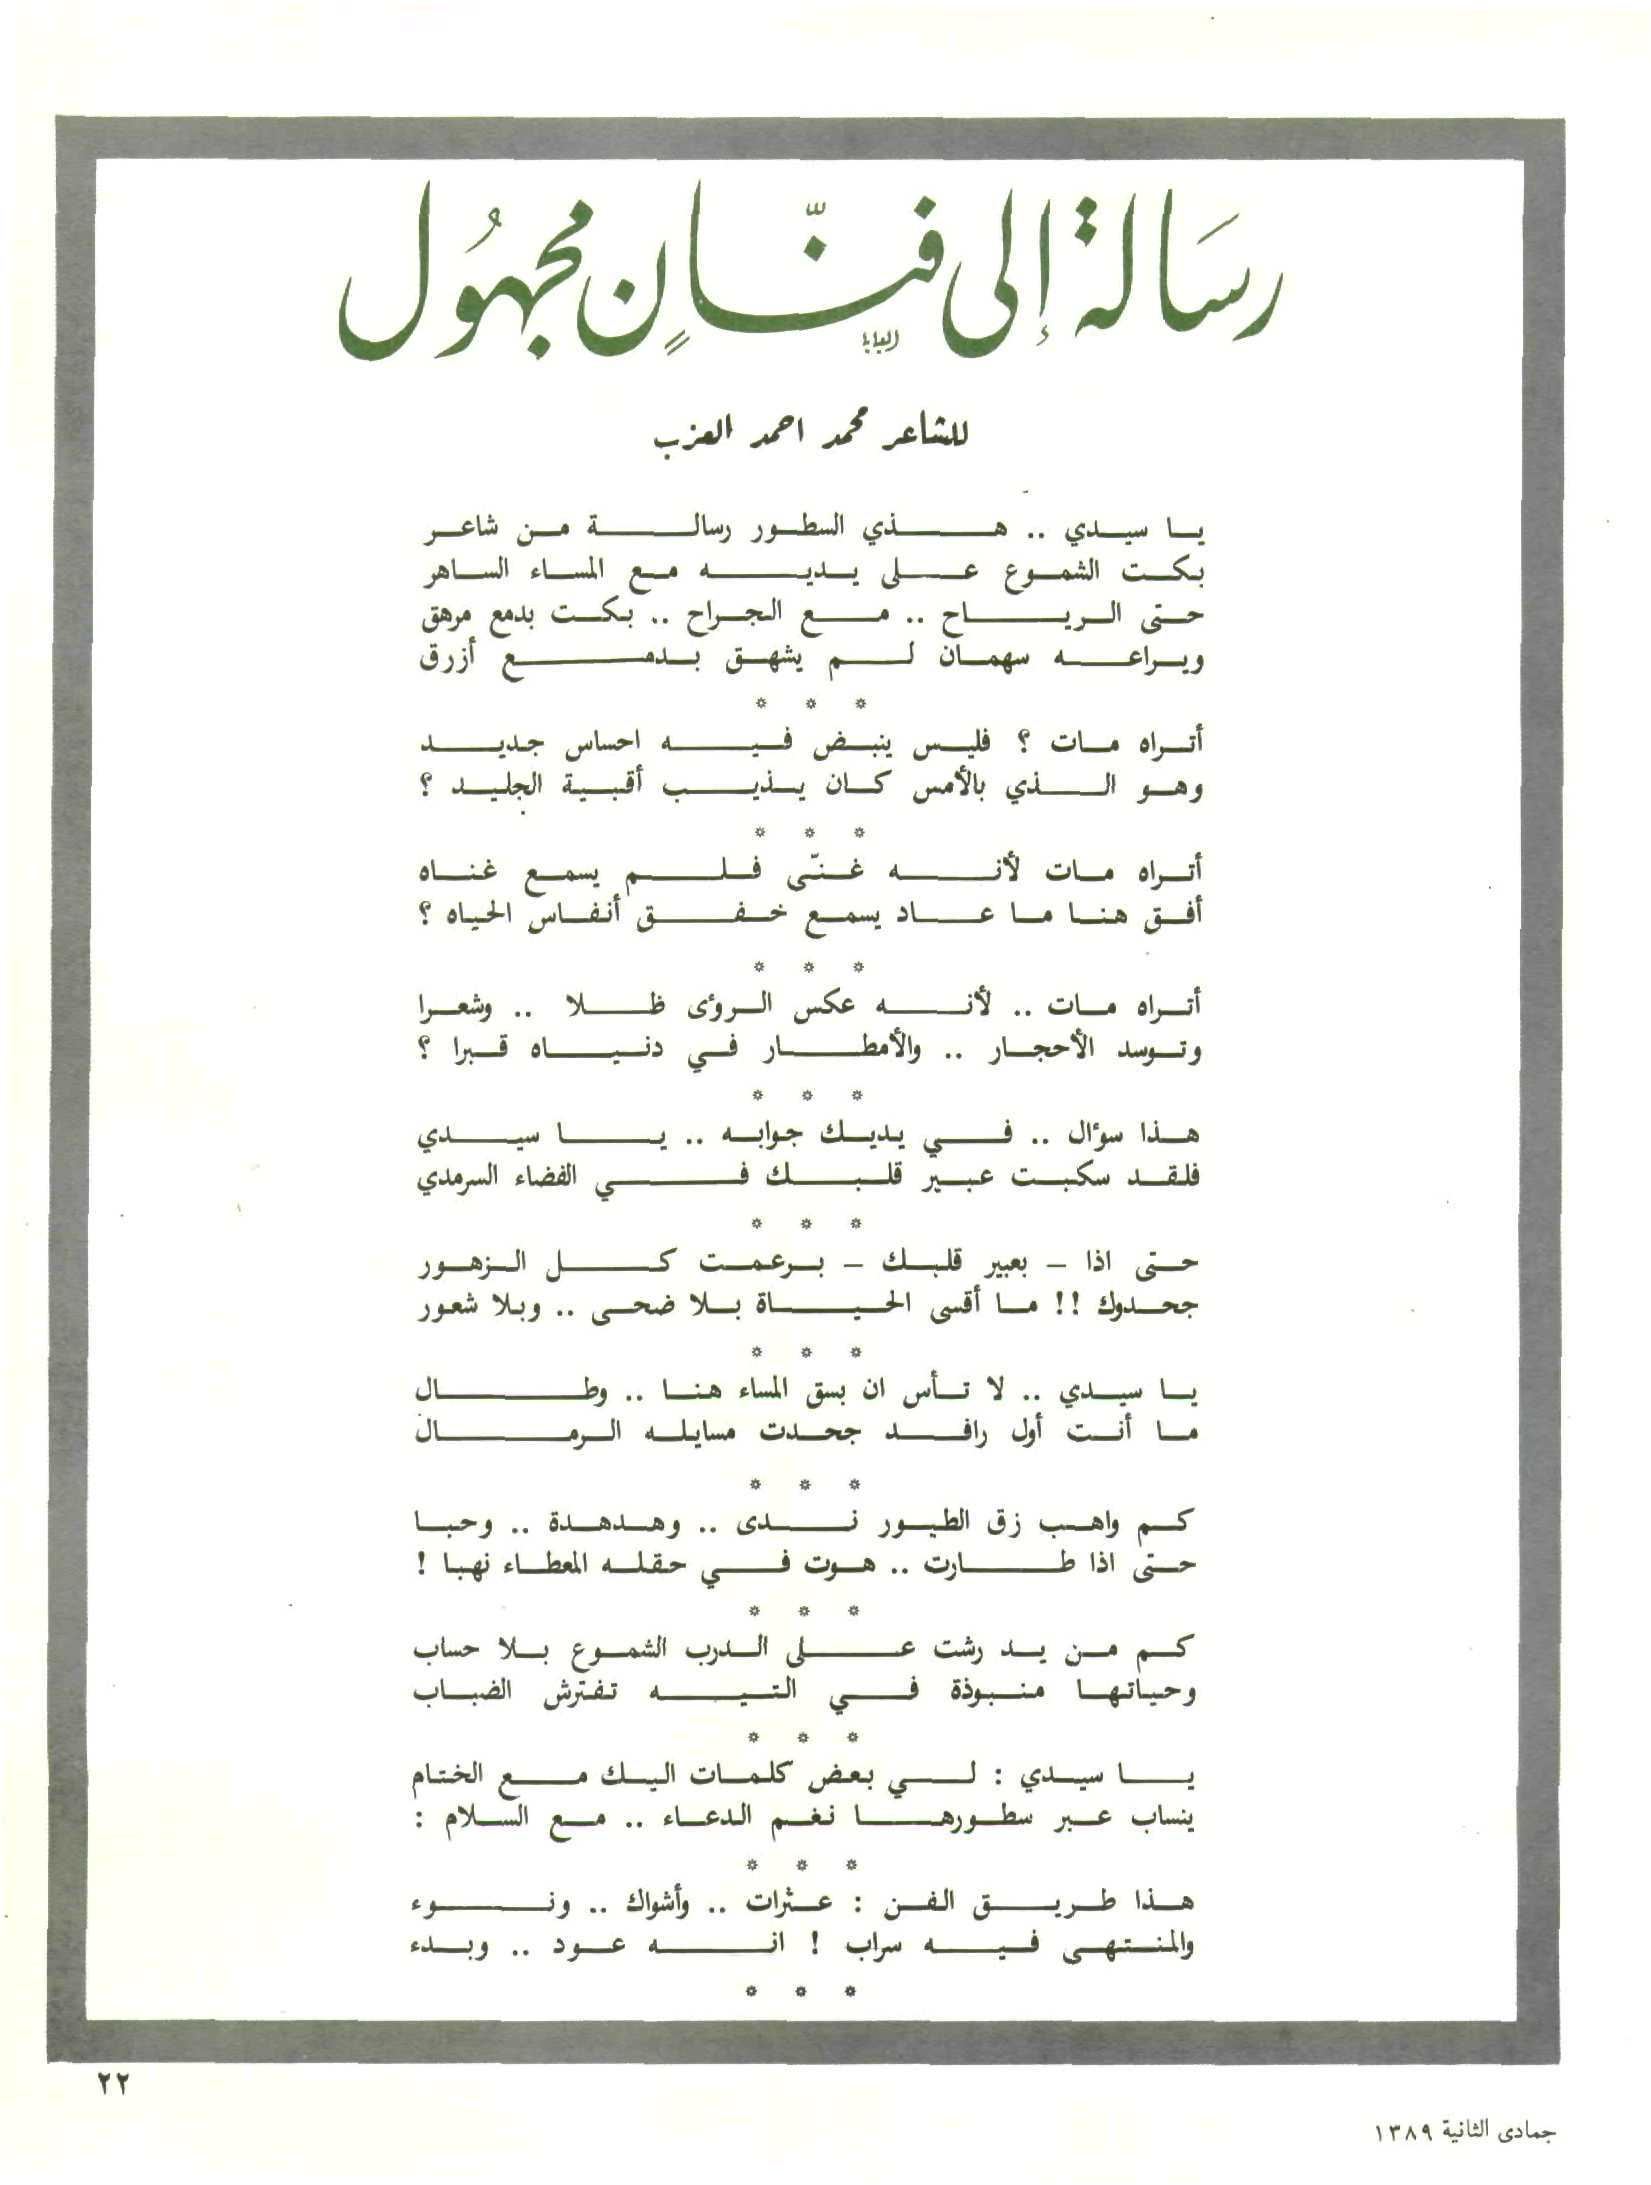 رسَالة إلى فنّانٍ مجهُول
للشاعر محمد احمد العزب
يا سيدي .. هذي السطور رسالة من شاعر
بكت الشموع على يديه مع المساء الساهر
حتى الرياح .. مع الجراح .. بكت بدمع مرهق
ويراعه سهمان لم يشهق بدمع أزرق
* * *
أتراه مات ؟ فليس ينبض فيه احساس جديد
وهو الذي بالأمس كان يذيب أقبية الجليد ؟
* * *
أتراه مات لأنه غنّى فلم يسمع غناه
أفق هنا ما عاد يسمع خفق أنفاس الحياه ؟
* * *
أتراه مات .. لأنه عكس الرؤى ظلا .. وشعرا
وتوسد الأحجار .. والأمطار في دنياه قبرا ؟
* * *
هذا سؤال .. في يديك جوابه .. يا سيدي
فلقد سكبت عبير قلبك في الفضاء السرمدي
* * *
حتى اذا – بعبير قلبك – برعمت كل الزهور
جحدوك !! ما أقسى الحياة بلا ضحى .. وبلا شعور
* * *
يا سيدي .. لا تأس ان بسق المساء هنا .. وطال
ما أنت أول رافد جحدت مسايله الرمال
* * *
كم واهب زق الطيور ندى .. وهدهدة .. وحبا
حتى اذا طارت .. هوت في حقله المعطاء نهبا !
* * *
كم من يد رشت على الدرب الشموع بلا حساب
وحياتها منبوذة في التيه تفترش الضباب
* * *
يا سيدي : لي بعض كلمات اليك مع الختام
ينساب عبر سطورها نغم الدعاء .. مع السلام :
* * *
هذا طريق الفن : عثرات .. وأشواك .. ونوء
والمنتهى فيه سراب ! انه عود .. وبدء
* * *
٢٢
جمادى الثانية ١٣٨٩